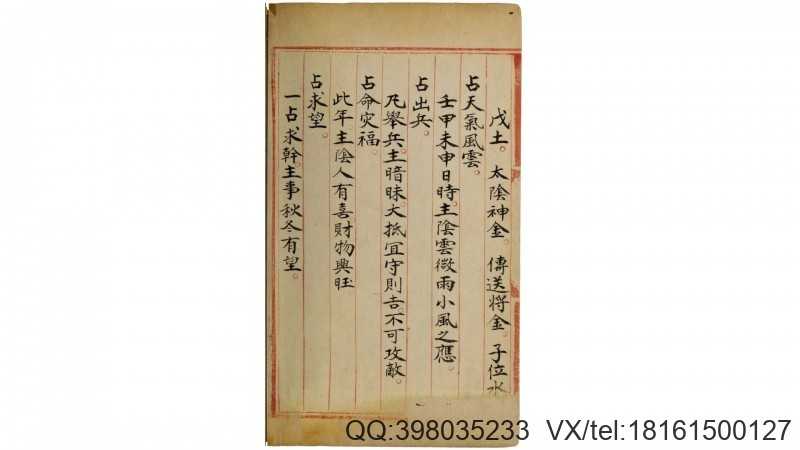 戊土。太陰神金。傳送將金。子位水
占天氣風雲。
壬甲未申日時。主陰雲微雨小風之應。
占出兵。
凡舉兵。主暗昧大抵宜守則吉不可攻敵。
占命灾福。
此年主陰人有喜財物興旺
占求望。
一占求幹。主事秋冬有望。
QQ:398035233 VX/tel:18161500127